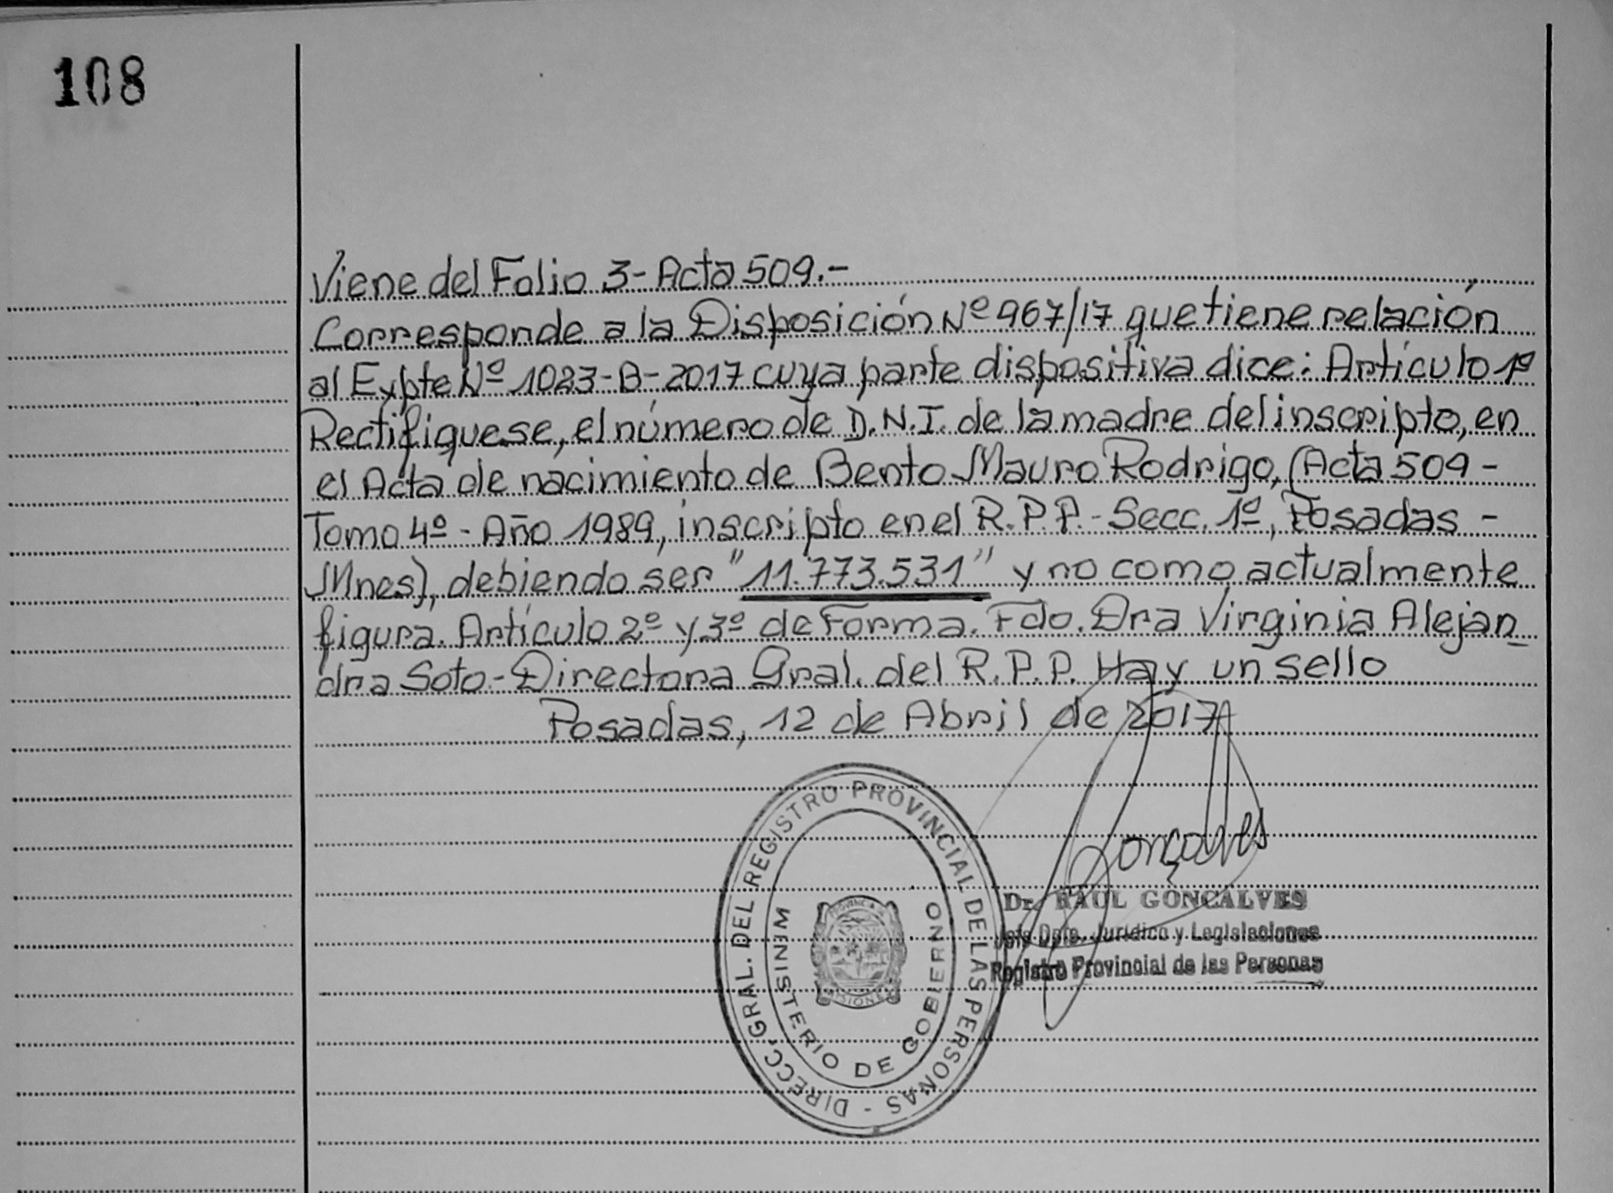 108
Viene del Folio 3- Acta 509.-
Corresponde a la Disposición Nº 967/17 que tiene relación
al Expte Nº 1023-B-2017 cuya parte dispositiva dice: Artículo 1º
Rectifíquese, el número de D.N.I. de la madre del inscripto, en
el Acta de nacimiento de Bento Mauro Rodrigo, (Acta 509 -
Tomo 4º - Año 1989, inscripto en el R.P.P. - Secc. 1º, Posadas -
Mnes), debiendo ser "11.773.531" y no como actualmente
figura. Artículo 2º y 3º de Forma. Fdo. Dra Virginia Alejan_
dra Soto - Directora Gral. del R.P.P. Hay un sello
Posadas, 12 de Abril de 2017
DIRECC. GRAL. DEL REGISTRO PROVINCIAL DE LAS PERSONAS -
MINISTERIO DE GOBIERNO
PROVINCIA
MISIONES
Gonçalves
Dr. RAUL GONCALVES
Jefe Dpto. Jurídico y Legislaciones
Registro Provincial de las Personas